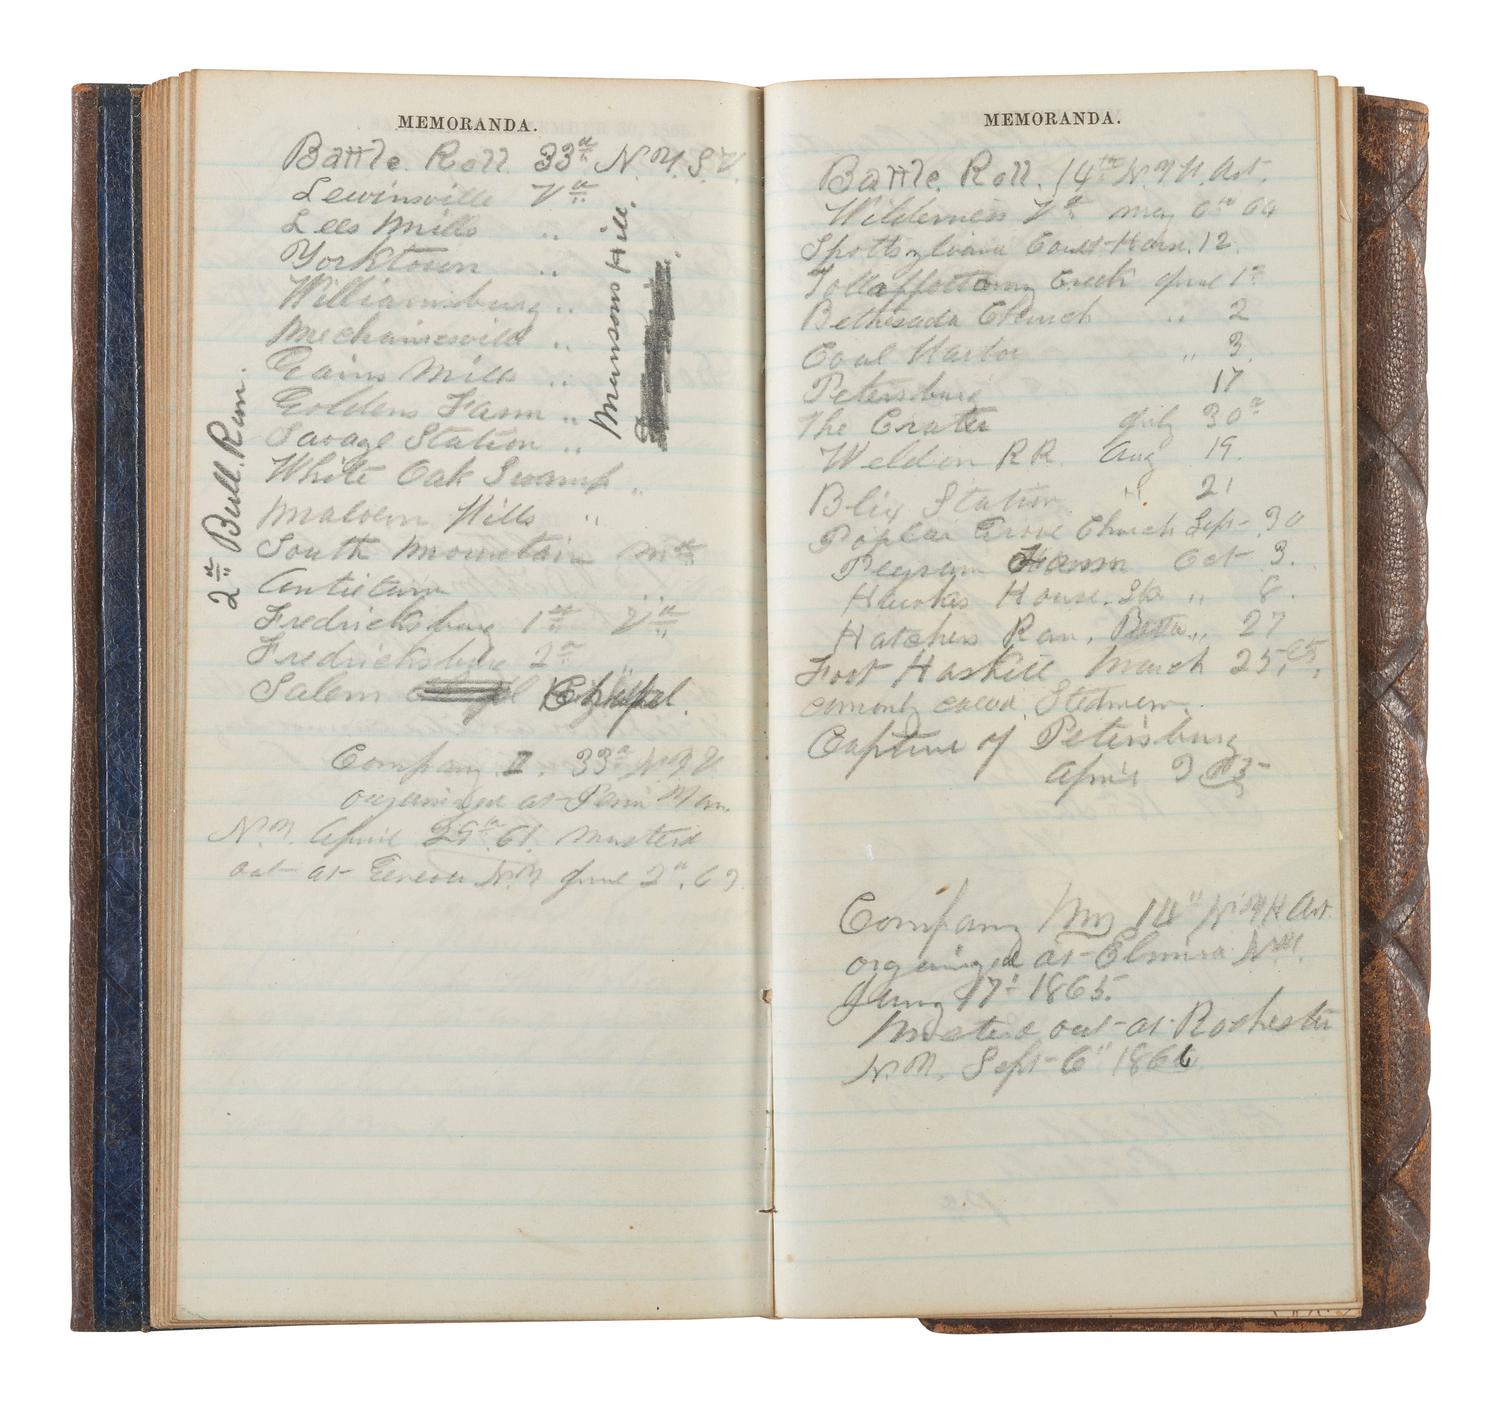 MEMORANDA.
Battle. Roll. 33d N.Y.S.V.
Lewinsville Va
Lees Mills "
Yorktown "
Williamsburg "
Mechanicsvild "
Gains Mills "
Goldens Farm "
Savage Station "
White Oak Swamp "
Malvern Hills "
South Mountain Md
Antietam "
Fredricksburg 1st Va
Fredricksburg 2d "
Salem Chapel.
Munsons Hill.
2d Bull. Run.
Company I. 33d N.Y.V
organized at Penn Yan
N.Y. April 29th 61. Musterd
out at Geneva N.Y June 2d. 63
MEMORANDA.
Battle. Roll. 14th N.Y.H. Art.
Wilderness Va. May 6th 64
Spottsylvania Court House. 12.
Tollappottomy Creek June 1st
Bethesada Church " 2
Coal Harbor " 3.
Petersburg 17
The Crater July 30th
Weldon R R. Aug 19.
Blix Station " 21
Poplar Grove Church Sept. 30
Pegram Oct 3.
House. " 8.
Hatchers Run, " 27
Fort Haskill March 25, 65,
comonly caled Stedmen.
Capture of Petersburg
April 3 65
Company 14" N.Y H Art.
organized at Elmira N.Y.
17" 1865.
Musterd out at Rochester
N.Y. Sept 6" 1866